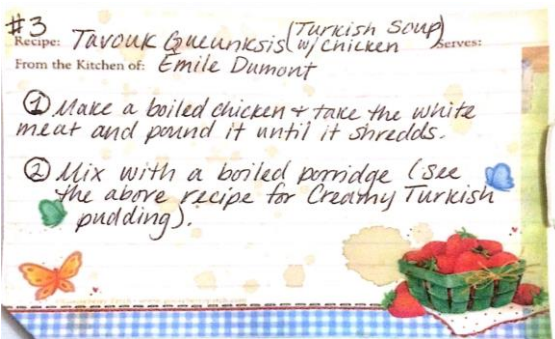 #3
Recipe: Tavouk Gueunksis (Turkish Soup w/ chicken) Serves:
From the Kitchen of: Emile Dumont
① Make a boiled chicken + take the white
meat and pound it until it shredds.
② Mix with a boiled porridge (see
the above recipe for Creamy Turkish
pudding).